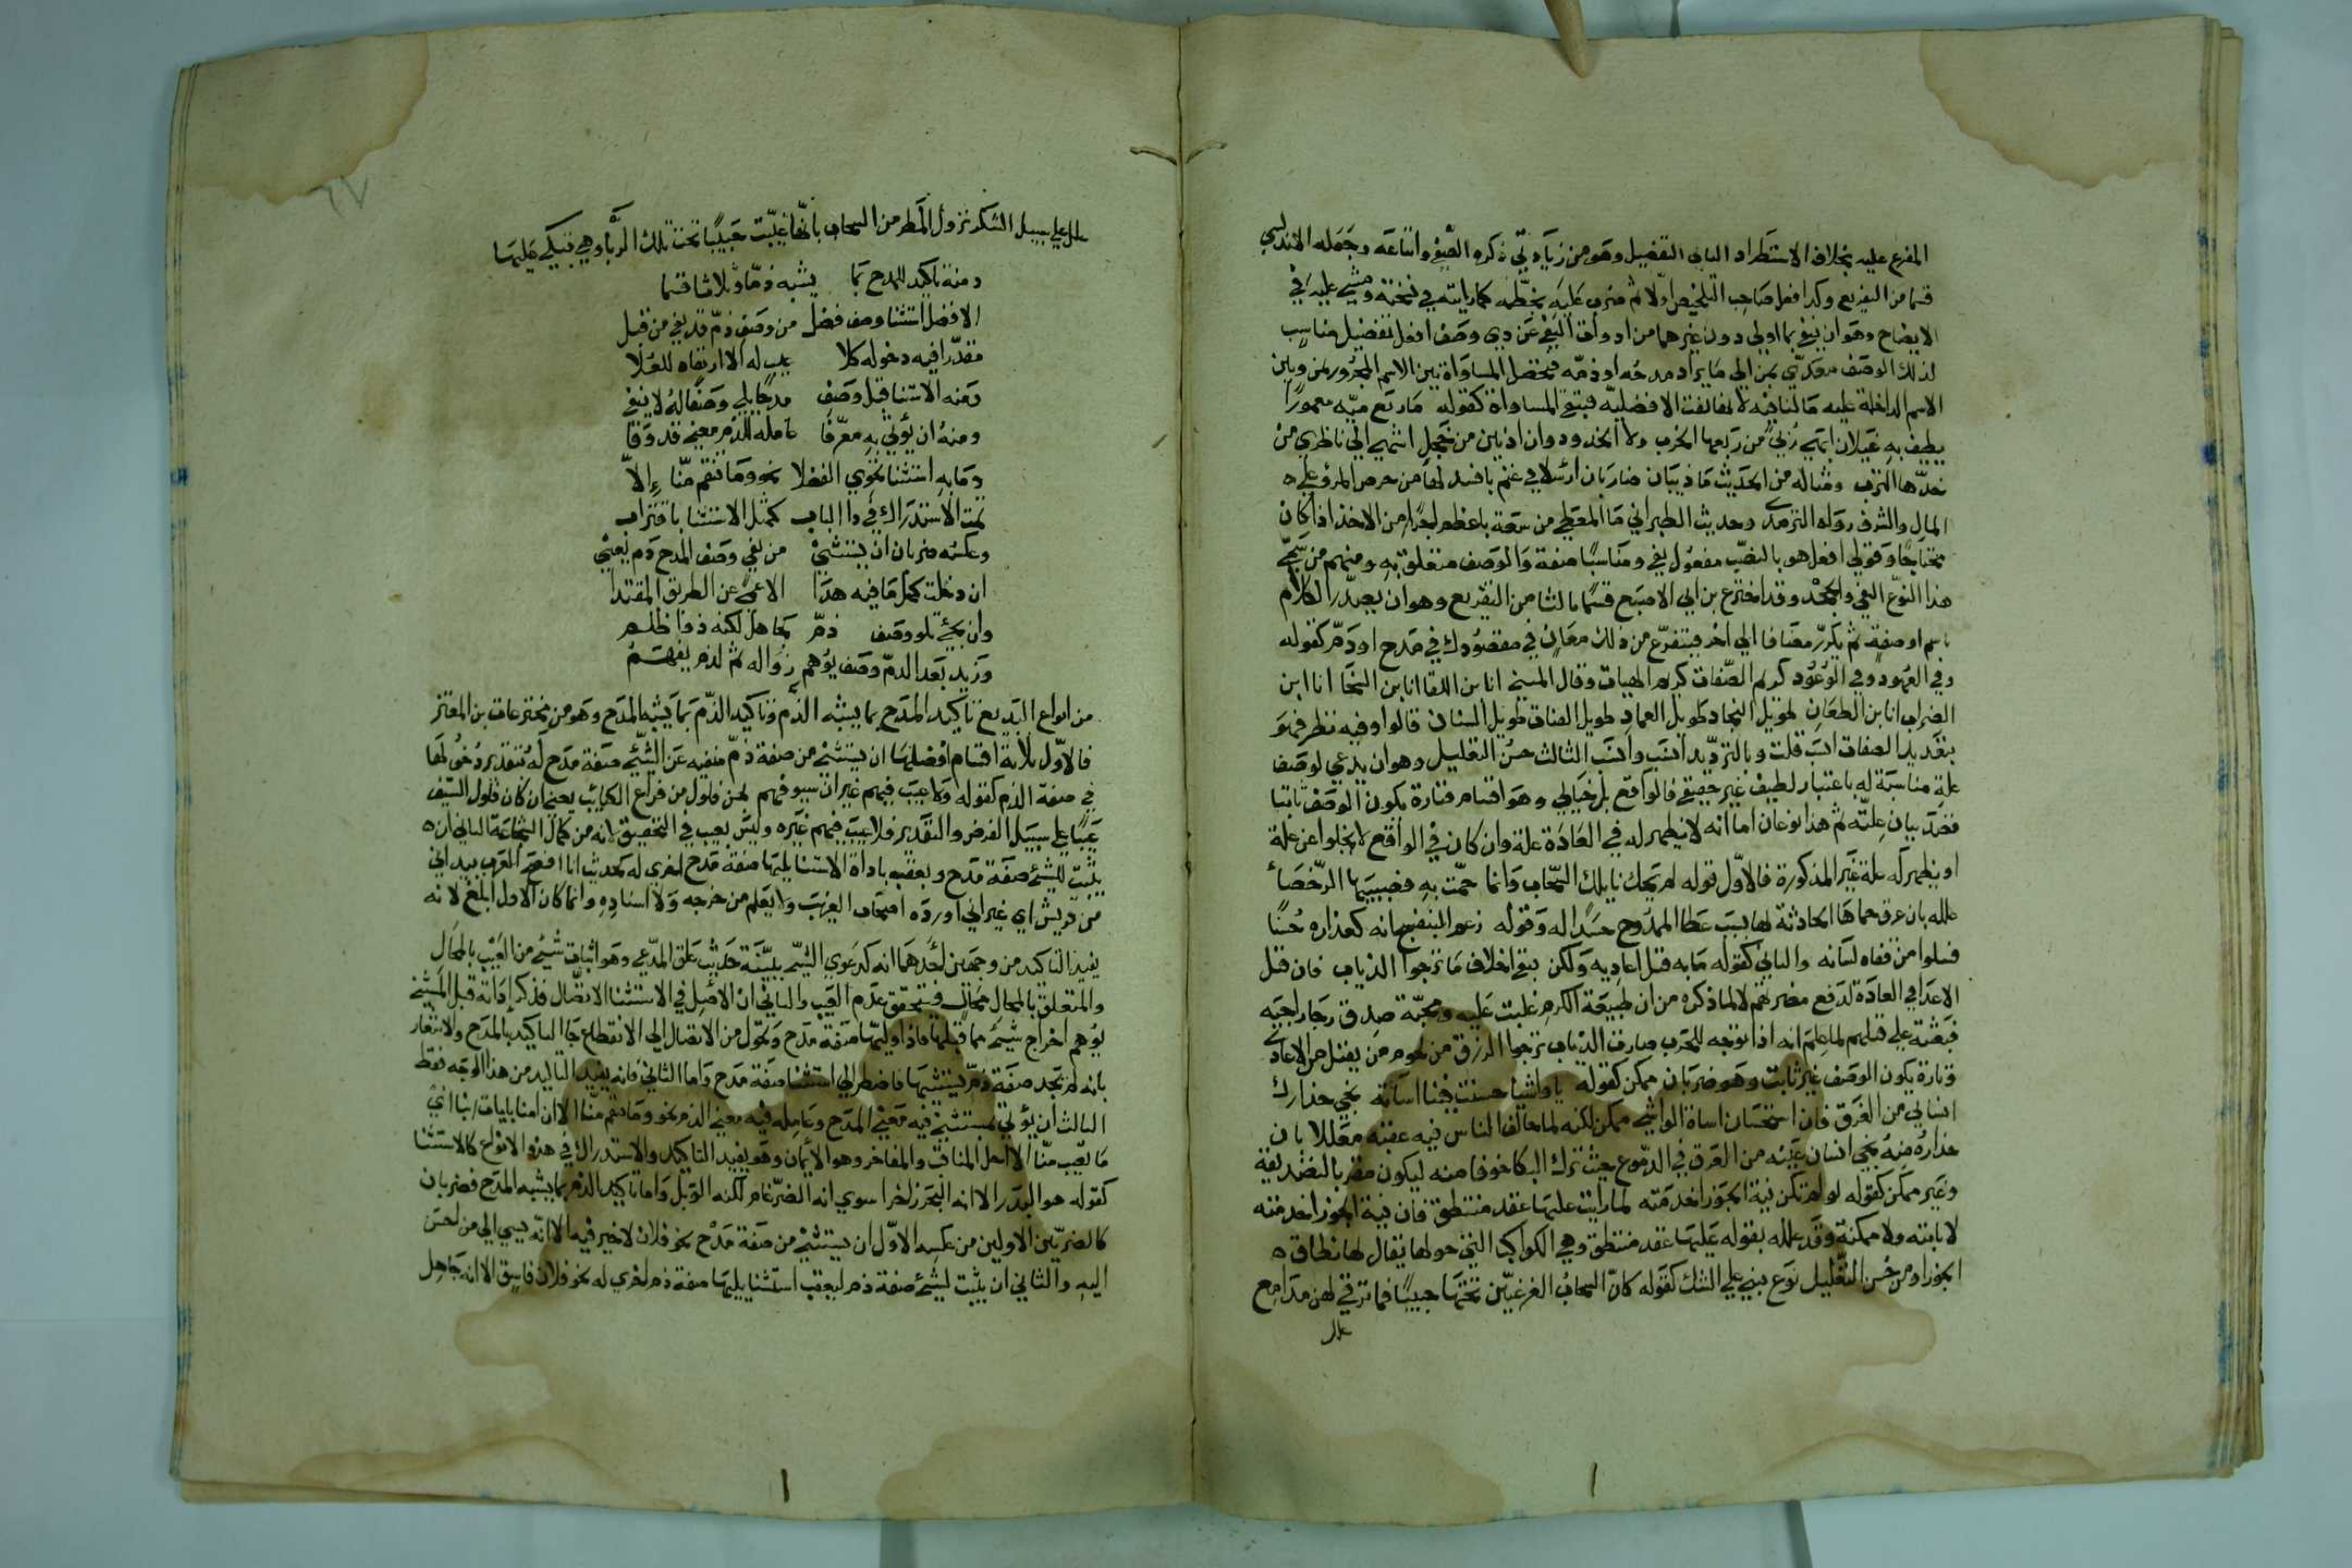 المفرع عليه بخلاف الاستطراد الثاني التفضيل وهو من زيادتي ذكره الصفي واتباعه وجعله الاندلسي
قسما من التفريع وكذا فعل صاحب التلخيص اولا ثم ضرب عليه بخطه كما رايته في نسخته ومشى عليه في
الايضاح وهو ان ينفي بما اولى دون غيرهما من ادوات النفي عن ذي وصف افعل تفضيل مناسب
لذلك الوصف معدى بمن الى ما يراد مدحه او ذمه فتحصل المساواة بين الاسم المجرور بمن وبين
الاسم الداخلة عليه ما النافية لانها نفت الافضلية فتبقى المساواة كقوله ما ربع مية معمورا
يطيف به غيلان ابهى ربى من ربعها الخرب ولا الخدود وان ادمين من خجل اشهى الى ناظري من
خدها الترب ومثاله من الحديث ما ذيبان ضاريان ارسلا في غنم بافسد لها من حرص المرء على
المال والشرف رواه الترمذي وحديث الطبراني ما المعطي من سعة باعظم اجرا من الاخذ اذا كان
محتاجا وقولي افعل هو بالنصب مفعول ينفي ومناسبا صفة والوصف متعلق به ومنهم من يسمي
هذا النوع النفي والجحد وقد اخترع بن ابي الاصبع قسما ثالثا من التفريع وهو ان يصدر الكلام
باسم او صفة ثم يكرر مضافا الى اخر فيتفرع من ذلك معان في مقصودك في مدح او ذم كقوله
وفي العهود وفي الوعود كريم الصفات كريم الهبات وقال المسيح انا ابن اللقا انا بن السخا انا ابن
الضراب انا بن الطعان طويل النجاد طويل العماد طويل القناة طويل السنان قالوا وفيه نظر فهو
بتعديد الصفات انسب قلت وبالترديد انسب وانسب الثالث حسن التعليل وهو ان يدعي لوصف
علة مناسبة له باعتبار لطيف غير حقيقي فالواقع بل خيالي وهو اقسام فتارة يكون الوصف ثابتا
فقصد بيان علته ثم هذا نوعان اما انه لا يظهر له في العادة علة وان كان في الواقع لا يخلوا عن علة
او يظهر له علة غير المذكورة فالاول قوله لم يحك نايلك السحاب وانما حمت به فصبيبها الرحضاء
علله بان عرق حماها الحادثة لها بسبب عطا الممدوح حسدا له وقوله زعم البنفسج انه كعذاره حسنا
فسلوا من قفاه لسانه والثاني كقوله ما به قتل اعاديه ولكن يتقي اخلاف ما ترجوا الذياب فان قتل
الاعدا في العادة لدفع مضرتهم لا لما ذكره من ان طبيعة الكرم غلبت عليه ومحبة صدق رجا راجيه
فبعثته على قتلهم لما علم انه اذا توجه للحرب صارت الذياب ترتجي الرزق من لحوم من يقتل من الاعادي
وتارة يكون الوصف غير ثابت وهو ضربان ممكن كقوله يا واشيا حسنت فينا اساءته نجى حذارك
انساني من الغرق فان استحسان اساة الواشي ممكن لكنه لما خالف الناس فيه عقبه معللا بان
حذاره منه نجى انسان عينه من الغرق في الدموع حيث ترك البكا خوفا منه ليكون مقربا لتصديقه
وغير ممكن كقوله لو لم تكن نية الجوزا خدمته لما رايت عليها عقد منتطق فان نية الجوزا خدمته
لا ثابتة ولا ممكنة وقد علله بقوله عليها عقد منتطق وهي الكواكب التي حولها يقال لها نطاق
الجوزا ومن حسن التعليل نوع يبنى على الشك كقوله كان السحاب الغر غيبن تحتها حبيبا فما ترقي لهن مدامع
علل
علل على سبيل الشك نزول المطر من السحاب بانها غيبت حبيبا تحت تلك الربا وهي تبكي عليها
ومنه تاكيد المدح بما يشبه ذما وثلاثا قسما
الافضل استثنا وصف فضل من وصف ذم قد نفي من قبل
مقدرا فيه دخوله كلا عيب له الا ارتقاه للعلا
ومنه الاستثنا قبل وصف مدحا يلي وصفا له لا ينفي
ومنه ان يؤتى به معرفا عامله للذم معنى قد وفا
وما به استثنا نحوي الفضلا نحو وما تنقم منا الا
ثمت الاستدراك في ذا الباب كمثل الاستثنا باقتراب
وعكسه ضربان ان يستثني من نفي وصف المدح ذم يعني
ان دخلت كمل ما فيه هدا الا عمى عن الطريق المقتدا
وان يجئ تلو وصف ذم كجاهل لكنه ذو ظلم
وزيد بعد الذم وصف يوهم زواله ثم لذم يفهم
من انواع البديع تاكيد المدح بما يشبه الذم وتاكيد الذم بما يشبه المدح وهو من مخترعات بن المعتز
فالاول ثلاثة اقسام افضلها ان يستثنى من صفة ذم منفيه عن الشئ صفة مدح له بتقدير دخولها
في صفة الذم كقوله ولا عيب فيهم غير ان سيوفهم بهن فلول من قراع الكتايب يعني ان كان فلول السيف
عيبا على سبيل الفرض والتقدير فلا عيب فيهم غيره وليس بعيب في التحقيق لانه من كمال الشجاعة الثاني ان
يثبت للشئ صفة مدح ويعقب باداة الاستثنا يليها صفة مدح اخرى له كحديث انا افصح العرب بيد اني
من قريش اي غير اني اورده اصحاب الغريب ولا يعلم من خرجه ولا اسناده وانما كان الاول ابلغ لانه
يفيد التاكيد من وجهين احدهما انه كدعوى الشئ ببينة حيث علق المدعي وهو اثبات شئ من العيب بالمحال
والمتعلق بالمحال محال فيتحقق عدم العيب والثاني ان الاصل في الاستثنا الاتصال فذكر اداته قبل المستثنى
يوهم اخراج شئ مما قبلها فاذا وليها صفة مدح وتحول من الاتصال الى الانقطاع جا التاكيد بالمدح والاشعار
بانه لم يجد صفة ذم يستثنيها فاضطر الى استثنا صفة مدح واما الثاني فانه يفيد التاكيد من هذا الوجه فقط
الثالث ان يؤتى بمستثنى فيه معنى المدح وعامله فيه معنى الذم نحو وما تنقم منا الا ان امنا بايات ربنا اي
ما تعيب منا الا اصل المناقب والمفاخر وهو الايمان وهو يفيد التاكيد والاستدراك في هذه الانواع كالاستثنا
كقوله هو البدر الا انه البحر زاخرا سوى انه الضرغام لكنه الوبل واما تاكيد الذم بما يشبه المدح فضربان
كالضربين الاولين من عكسه الاول ان يستثنى من صفة مدح نحو فلان لا خير فيه الا انه يسي الى من احسن
اليه والثاني ان يثبت لشئ صفة ذم ليعقب استثنا يليها صفة ذم اخرى له نحو فلان فاسق الا انه جاهل